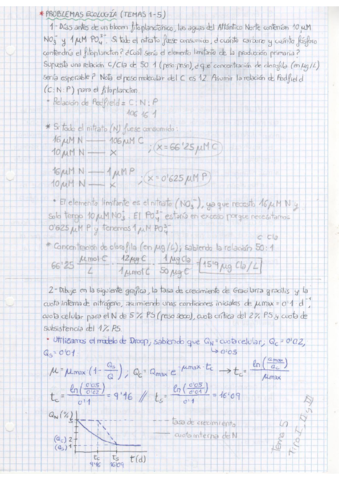 * PROBLEMAS ECOLOGÍA (TEMAS 1-5)
1- Días antes de un bloom fitoplanctónico, las aguas del Atlántico Norte contenían 10 μM
NO3- y 1 μM PO4 3-. Si todo el nitrato fuese consumido, ¿cuánto carbono y cuánto fósforo
contendría el fitoplancton? ¿Cuál sería el elemento limitante de la producción primaria?
Supuesta una relación C/Cla de 50:1 (peso:peso), ¿qué concentración de clorofila (mg/L)
sería esperable? Nota: el peso molecular del C es 12. Asuma la relación de Redfield
(C:N:P) para el fitoplancton.
• Relación de Redfield → C : N : P
106 16 1
* Si todo el nitrato (N) fuese consumido:
16 μM N —— 106 μM C
10 μM N —— x ; x = 66'25 μM C
16 μM N —— 1 μM P
10 μM N —— x ; x = 0'625 μM P
• El elemento limitante es el nitrato (NO3-), ya que necesito 16 μM N y
solo tengo 10 μM NO3-. El PO4 3- estaría en exceso porque necesitamos
0'625 μM P y tenemos 1 μM PO4 3-
C Cla
* Concentración de clorofila (en μg/L), sabiendo la relación 50:1
66'25 μmol C / L · 12 μg C / 1 μmol C · 1 μg Cla / 50 μg C = 15'9 μg Cla/L
2- Dibuje en la siguiente gráfica, la tasa de crecimiento de Gracilaria gracilis y la
cuota interna de nitrógeno, asumiendo unas condiciones iniciales de μmax = 0'1 d-1,
cuota celular para el N de 5% PS (peso seco), cuota crítica del 2% PS y cuota de
subsistencia del 1% PS.
• Utilizamos el modelo de Droop, sabiendo que Q = cuota celular, Qc = 0'02,
Q0 = 0'01 → 0'05
μ = μmax (1 - Q0/Q), Qc = Qmax e -μmax tc → tc = ln(Qmax/Qc) / μmax
tc = ln(0'05/0'02) / 0'1 = 9'16 // ts = ln(0'05/0'01) / 0'1 = 16'09
QN (%)
5
--- tasa de crecimiento
— cuota interna de N
(Qc) 2
(Q0) 1
tc ts t (d)
9'16 16'09
Tema 5
Tipo I, II y III